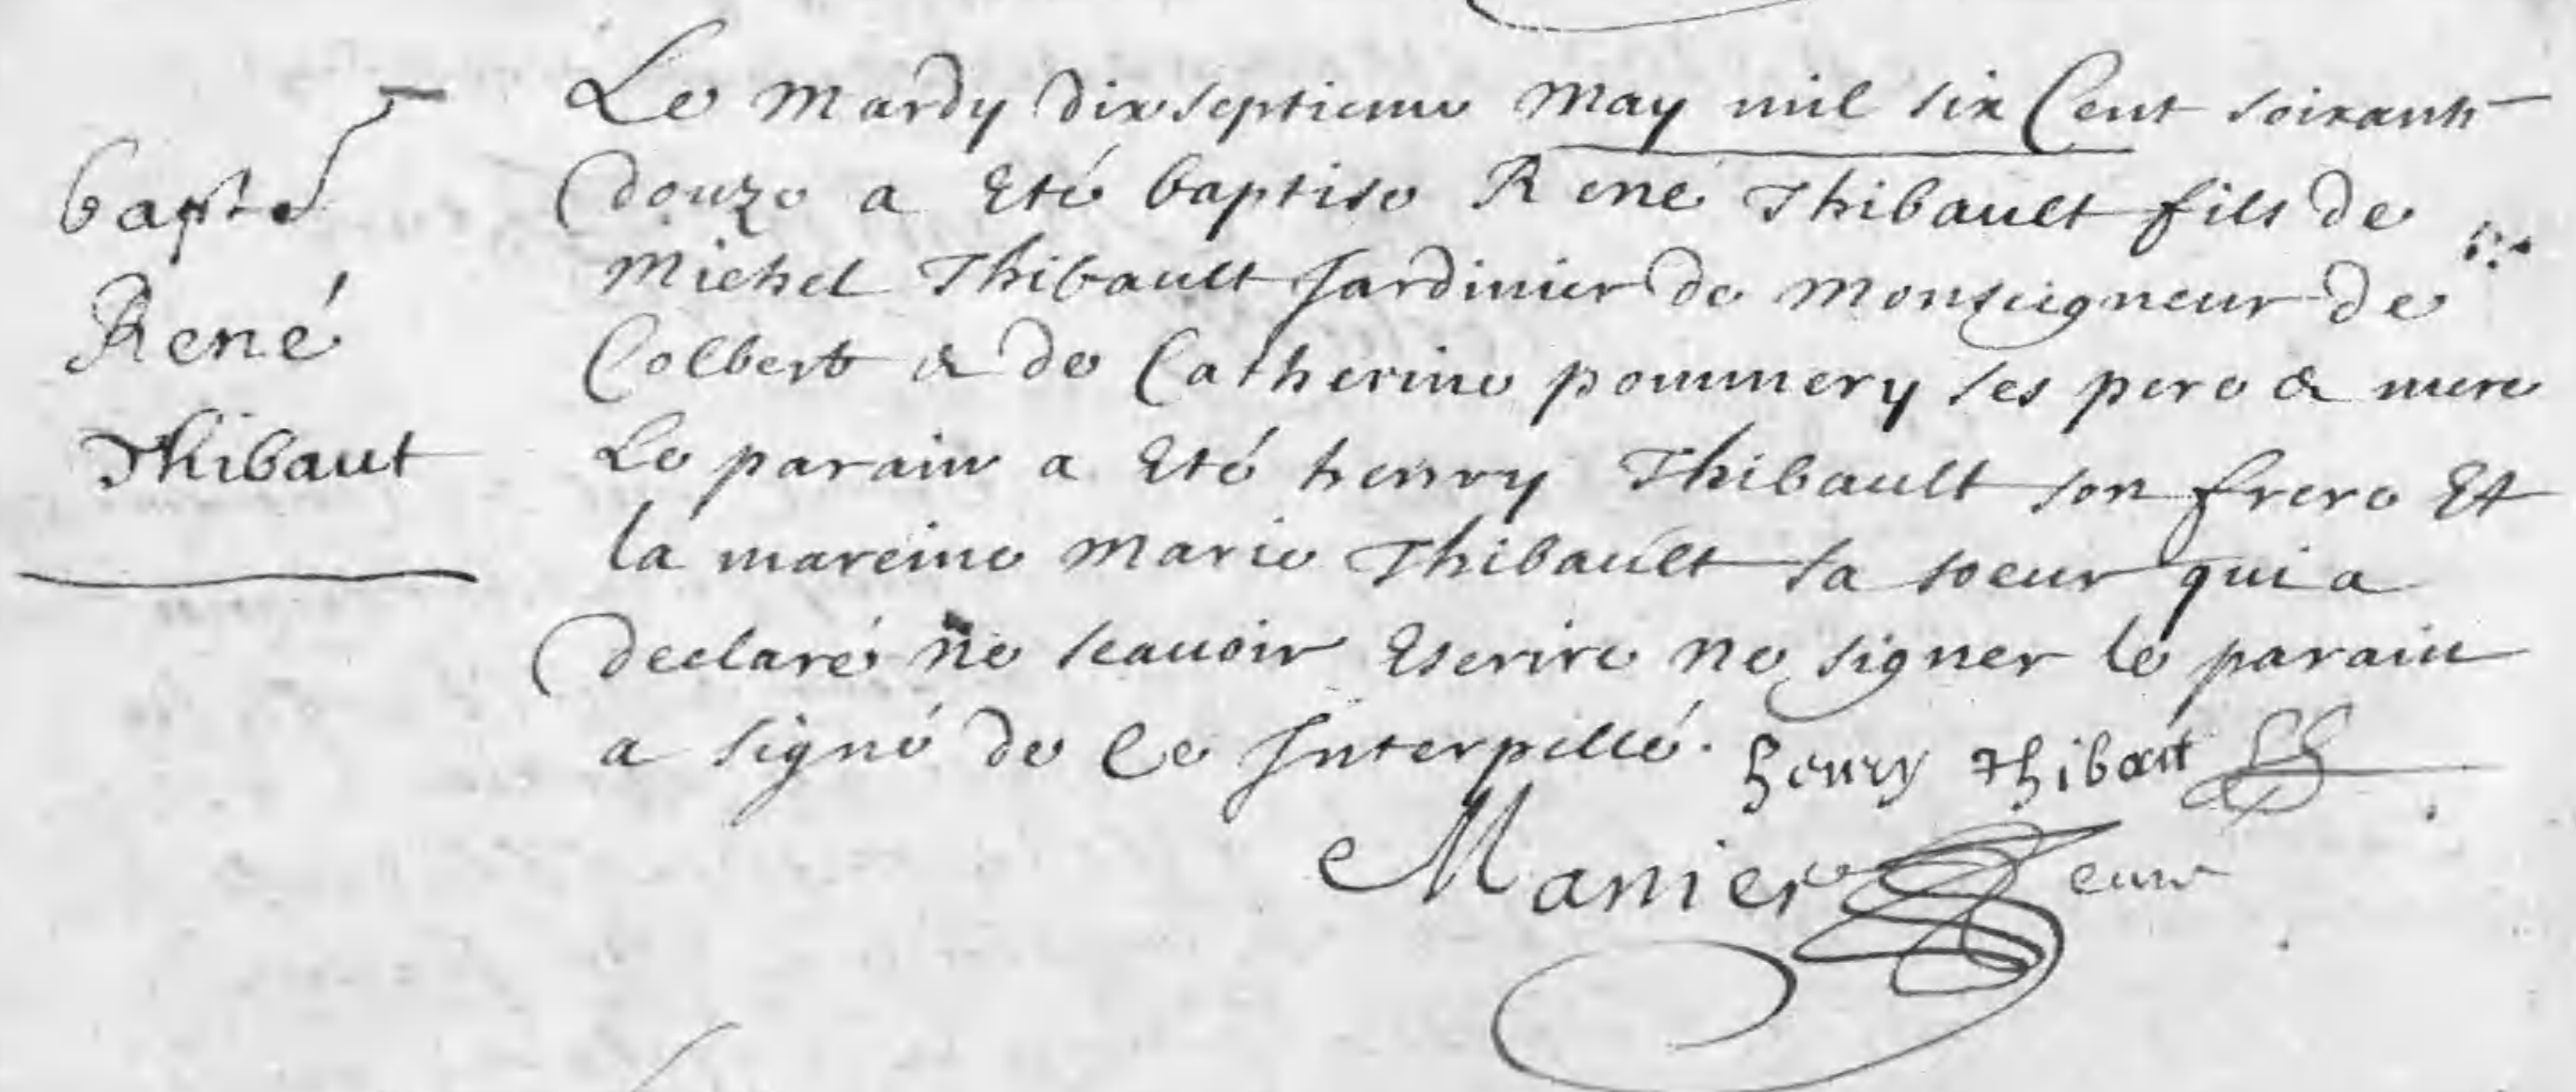 Le mardy dix septieme may mil six Cent soixante
bapte
douze a Eté baptise René Thibault fils de
Michel Thibault Jardinier de Monseigneur de
René
Colbert & de Catherine pommery ses pere & mere
Thibaut
Le parain a Eté henry Thibault son frere Et
la mareine marie Thibault sa soeur qui a
declaré ne scauoir Escrire ne signer le parain
a signé de Ce Interpellé. henry thibaut
Manier curé